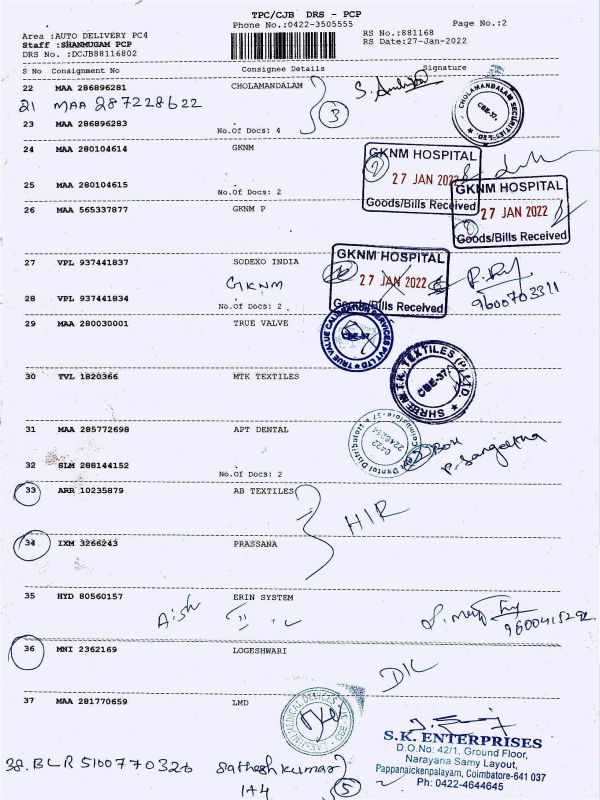 TPC/CJB DRS - PCP
Phone No.:0422-3505555 Page No.:2
Area :AUTO DELIVERY PC4 RS No.:881168
Staff :SHANMUGAM PCP RS Date:27-Jan-2022
DRS No. :DCJB88116802
S No Consignment No Consignee Details Signature
22 MAA 286896281 CHOLAMANDALAM
21 MAA 287228622 3
23 MAA 286896283
No.Of Docs: 4
CHOLAMANDALAM SECURITIES
CBE-37.
24 MAA 280104614 GKNM
GKNM HOSPITAL
27 JAN 2022
Goods/Bills Received
25 MAA 280104615
No.Of Docs: 2
GKNM HOSPITAL
27 JAN 2022
Goods/Bills Received
26 MAA 565337877 GKNM P
27 VPL 937441837 SODEXO INDIA
GKNM HOSPITAL
27 JAN 2022
Goods/Bills Received
GKNM
28 VPL 937441834
No.Of Docs: 2
9600703311
29 MAA 280030001 TRUE VALVE
TRUE VALUE CALIBRATION SERVICES PVT LTD
CBE-37
30 TVL 1820366 MTK TEXTILES
SHREE M.T.K. TEXTILES (P) LTD.
CBE-37
31 MAA 285772698 APT DENTAL
Dental Distributors
Coimbatore-37
0422
32 SLM 288144152
No.Of Docs: 2
2 Box
P. Sangeetha
33 ARR 10235879 AB TEXTILES
34 IXM 3266243 PRASSANA
35 HYD 80560157 ERIN SYSTEM
36 MNI 2362169 LOGESHWARI
37 MAA 281770659 LMD
LAKSHMI MEDICAL DEVICES
S.K. ENTERPRISES
D.O.No: 42/1, Ground Floor,
Narayana Samy Layout,
Pappanaickenpalayam, Coimbatore-641 037
Ph: 0422-4644645
38. BLR 5100770326 Satheshkumar
1+4 5